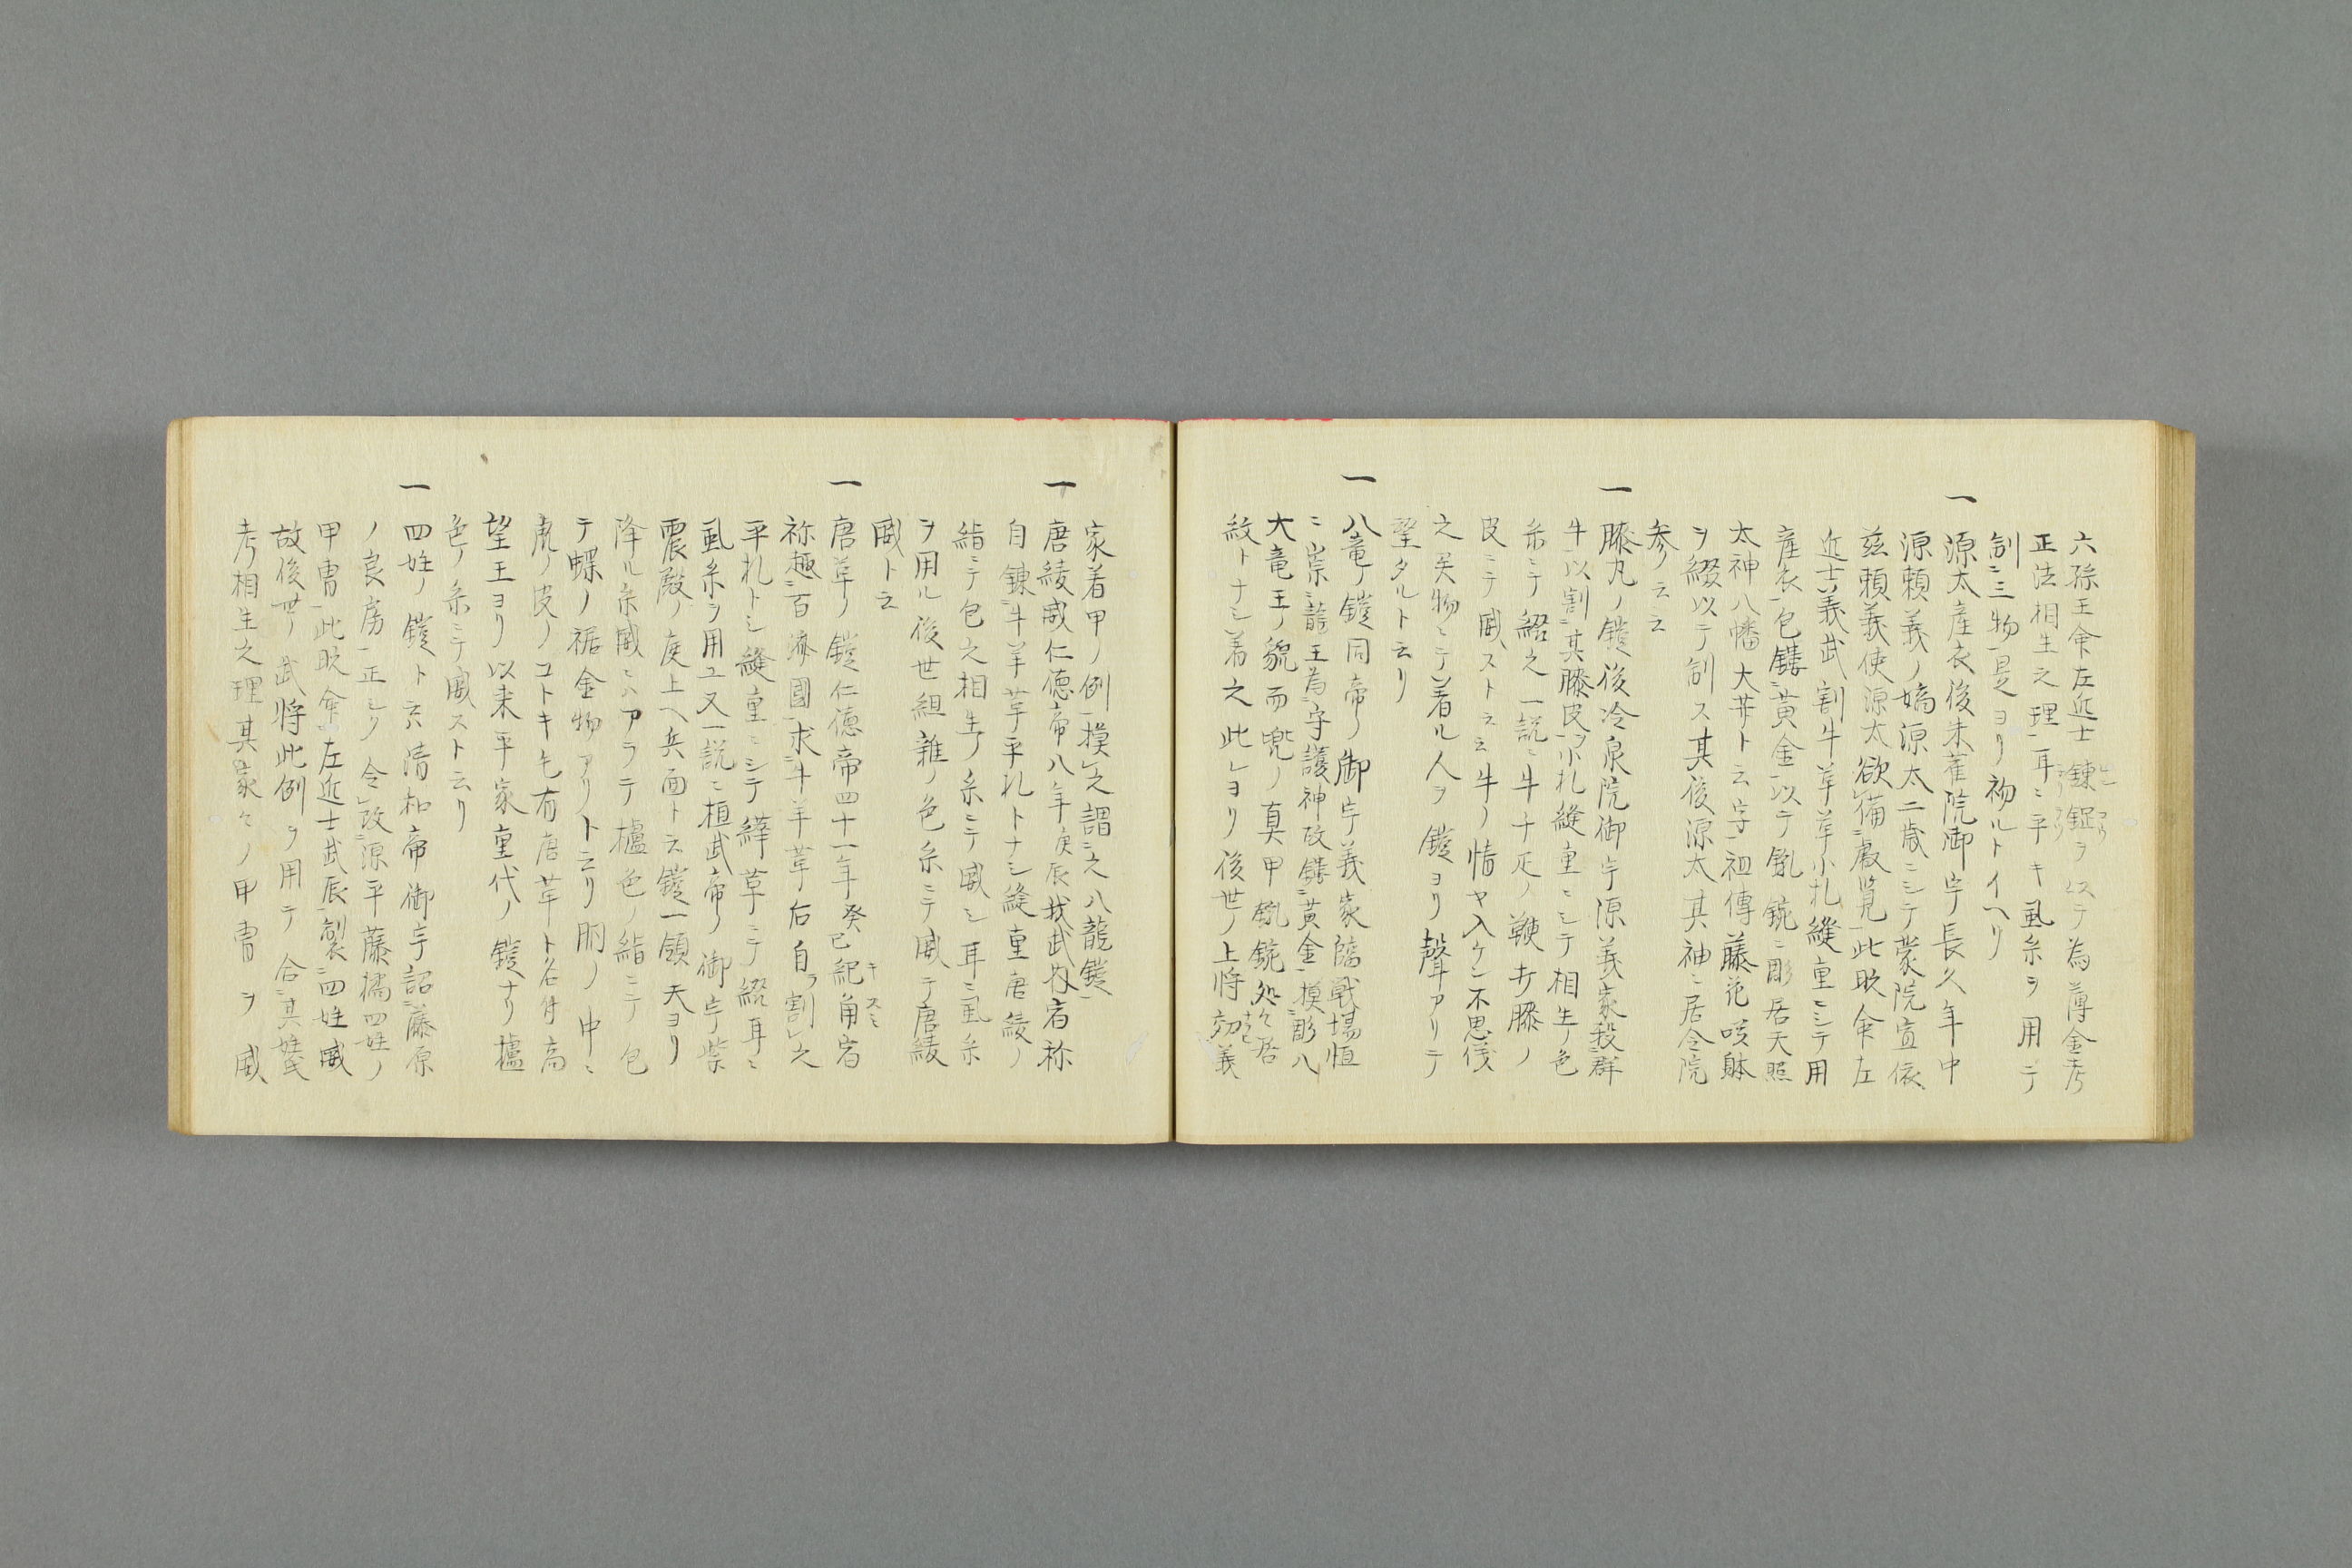 六孫王命左近士錬鋌ヲ以テ為薄金考
正法相生之理耳ニ平キ虱糸ヲ用テ
制ニ三物是ヨリ初ルトイヘリ
一 源太産衣後朱雀院御宇長久年中
源頼義ノ嫡源太二歳ニシテ蒙院宣依
茲頼義使源太欲備叡覧此時命左
近士義武割牛革草小札縫重ニシテ用
産衣包鏤黄金以テ胸鏡ニ彫居天照
太神八幡大菩薩ト云字祖傳藤花咲躰
ヲ綴以テ制ス其後源太其袖ニ居令院
参云云
一 膝丸ノ鎧後冷泉院御宇源義家殺群
牛以割其膝皮ヲ小札縫重ニシテ相生ノ色
糸ニテ綴之一説ニ牛千疋ノ鞭打膝ノ
皮ニテ威スト云云牛ノ情ヤ入ケン不思儀
之美物ニテ着ル人ヲ鎧ヨリ聲アリテ
望タルト云リ
一 八竜ノ鎧同帝ノ御宇義家臨戦場恒
ニ崇龍王為守護神故鏤黄金模彫八
大竜王ノ貌而兜ノ真甲胸鏡処々居
紋トナシ着之此レヨリ後世ノ上将効義
家着甲ノ例摸之謂之八龍鎧
一 唐綾威仁徳帝八年庚辰我武内宿祢
自錬牛羊草平札トナシ縫重唐綾ノ
絹ニテ包之相生ノ糸ニテ威シ耳ニ虱糸
ヲ用ル後世組雑ノ色糸ニテ威テ唐綾
威ト云
一 唐革ノ鎧仁徳帝四十一年癸巳紀角宿
祢趣百済國求牛羊草后自ラ割之
平札トシ縫重ニシテ繹草ニテ綴耳ニ
虱糸ヲ用ユ又一説ニ桓武帝ノ御宇紫
震殿ノ庭上ヘ兵面ト云鎧一領天ヨリ
降ル糸威ニハアラテ櫨色ノ絹ニテ包
テ蝶ノ裾金物アリト云リ胴ノ中ニ
虎ノ皮ノコトキ毛有唐革ト名付高
望王ヨリ以来平家重代ノ鎧ナリ櫨
色ノ糸ニテ威スト云リ
一 四姓ノ鎧ト云ハ清和帝御宇詔藤原
ノ良房正シク令改源平藤橘四姓ノ
甲冑此時命左近士武辰製四姓威
故後世ノ武将此例ヲ用テ合其姓氏
考相生之理其家々ノ甲冑ヲ威